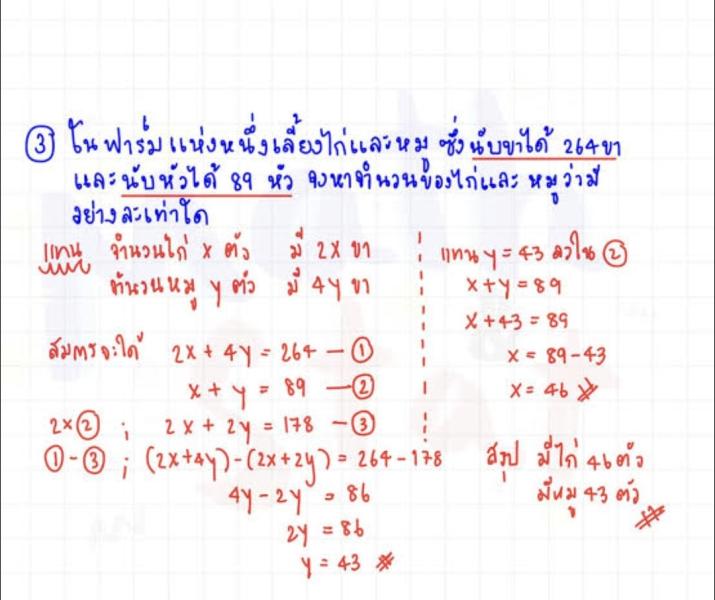 ③ ในฟาร์มแห่งหนึ่งเลี้ยงไก่และหมู ซึ่งนับขาได้ 264 ขา
และนับหัวได้ 89 หัว จงหาจำนวนของไก่และหมูว่ามี
อย่างละเท่าใด
แทน จำนวนไก่ x ตัว มี 2x ขา
จำนวนหมู y ตัว มี 4y ขา
สมการจะได้ 2x + 4y = 264 — ①
x + y = 89 — ②
2×② ; 2x + 2y = 178 — ③
① - ③ ; (2x+4y)-(2x+2y) = 264 - 178
4y - 2y = 86
2y = 86
y = 43
แทน y = 43 ลงใน ②
x + y = 89
x + 43 = 89
x = 89 - 43
x = 46
สรุป มีไก่ 46 ตัว
มีหมู 43 ตัว